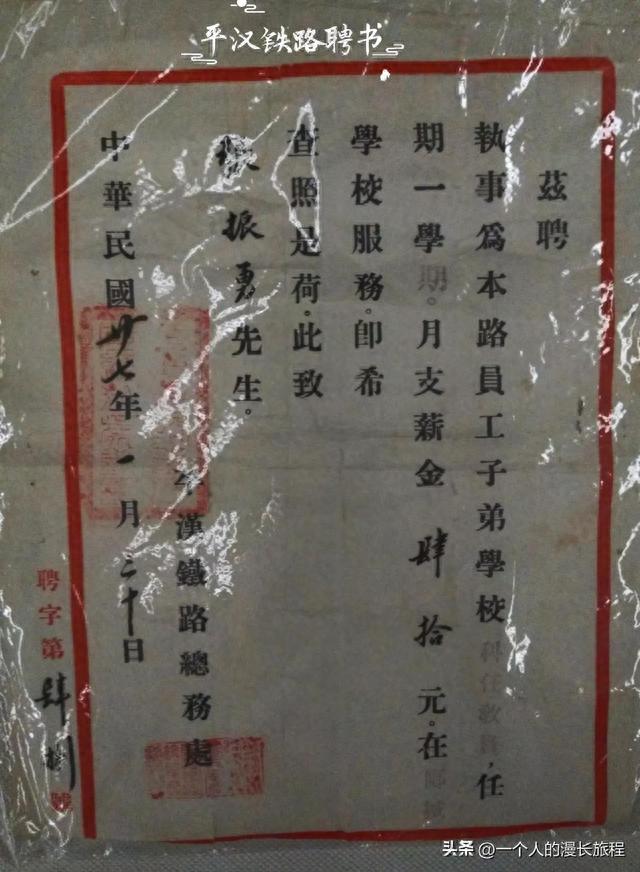 平汉铁路聘书
茲聘
執事爲本路員工子弟學校科任教員，任
期一學期。月支薪金肆拾元。在
學校服務。卽希
查照是荷。此致
振勇先生。
平漢鐵路總務處
中華民國卅七年一月三十日
聘字第肆捌號
头条 @一个人的漫长旅程